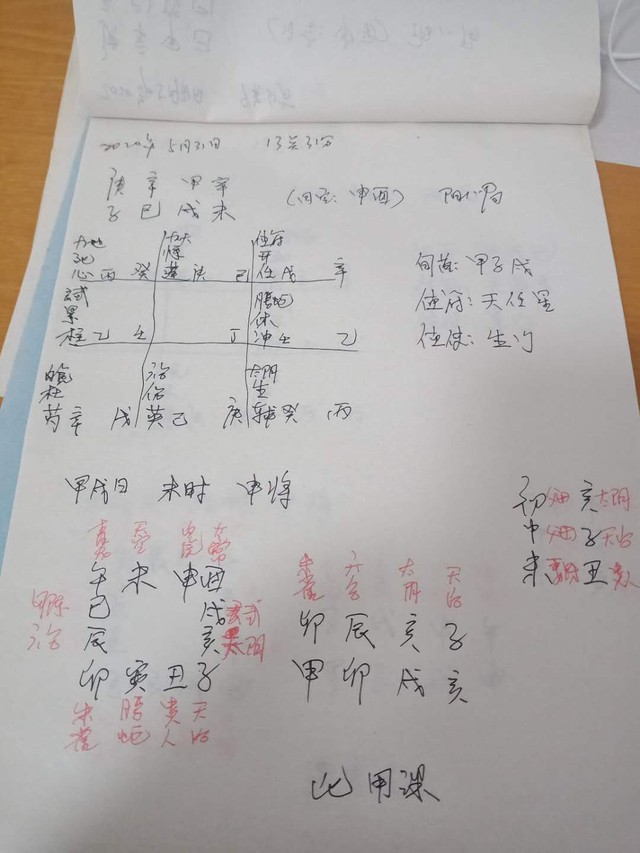 2020年 5月31日 13点31分
庚 辛 甲 辛
子 巳 戌 未
(旬空: 申酉)
旬首: 甲子戊
值符: 天任星
值使: 生门
九地 死 心 丙 癸
九天 惊 蓬 庚 己
值符 开 任 戊 辛
景 柱 乙 壬
丁
腾蛇 休 冲 壬 乙
杜 芮 辛 戊
六合 伤 英 己 庚
太阴 生 辅 癸 丙
甲戌日 未时 申将
初 亥 太阴
中 子 天后
末 丑 贵人
青龙 天空 白虎 太常
午 未 申 酉
勾陈 巳 戌 玄武
六合 辰 亥 太阴
卯 寅 丑 子
朱雀 腾蛇 贵人 天后
朱雀 六合 太阴 天后
卯 辰 亥 子
甲 卯 戌 亥
此用课